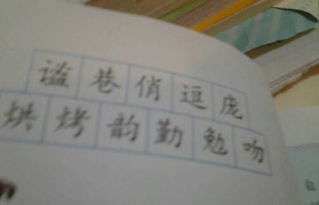 谧巷俏逗庞
烘烤韵勤勉吻